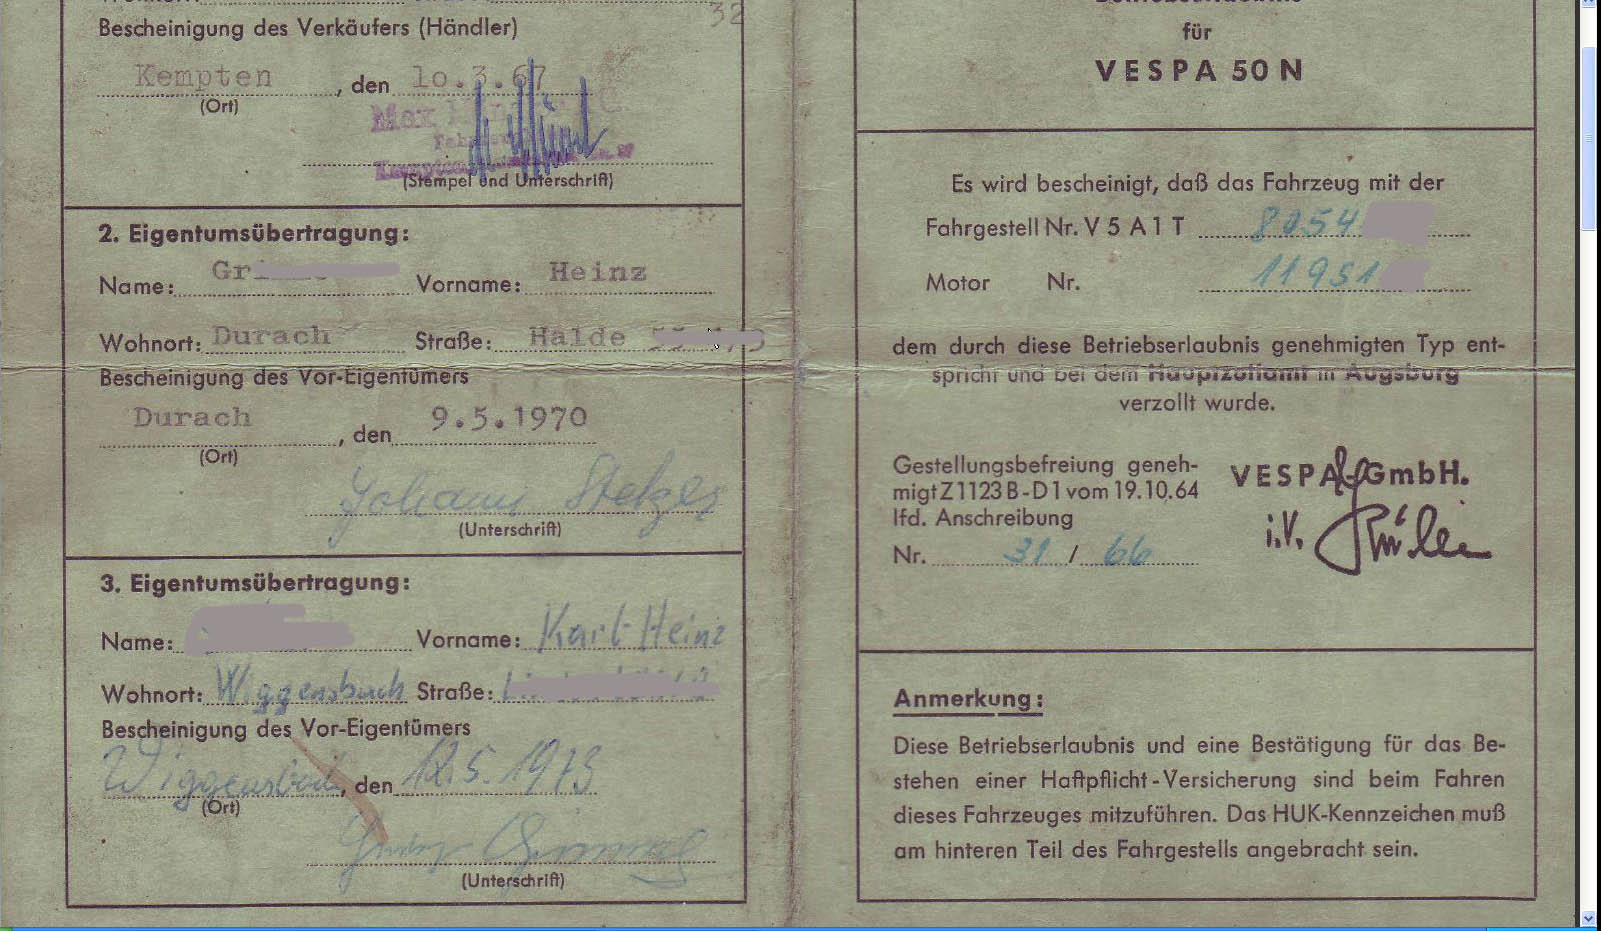 32
Bescheinigung des Verkäufers (Händler)
Kempten, den 10.3.67
(Ort)
Max
(Stempel und Unterschrift)
2. Eigentumsübertragung:
Name: Gr Vorname: Heinz
Wohnort: Durach Straße: Halde
Bescheinigung des Vor-Eigentümers
Durach, den 9.5.1970
(Ort)
Johann Stelzer
(Unterschrift)
3. Eigentumsübertragung:
Name: Vorname: Karl-Heinz
Wohnort: Wiggensbach Straße:
Bescheinigung des Vor-Eigentümers
Wiggensbach, den 12.5.1973
(Ort)
(Unterschrift)
für
VESPA 50 N
Es wird bescheinigt, daß das Fahrzeug mit der
Fahrgestell Nr. V 5 A 1 T 8054
Motor Nr. 11951
dem durch diese Betriebserlaubnis genehmigten Typ ent-
spricht und bei dem Hauptzollamt in Augsburg
verzollt wurde.
Gestellungsbefreiung geneh-
migt Z 1123 B - D 1 vom 19.10.64
lfd. Anschreibung
Nr. 31 / 66
VESPA GmbH.
i.V.
Anmerkung:
Diese Betriebserlaubnis und eine Bestätigung für das Be-
stehen einer Haftpflicht-Versicherung sind beim Fahren
dieses Fahrzeuges mitzuführen. Das HUK-Kennzeichen muß
am hinteren Teil des Fahrgestells angebracht sein.